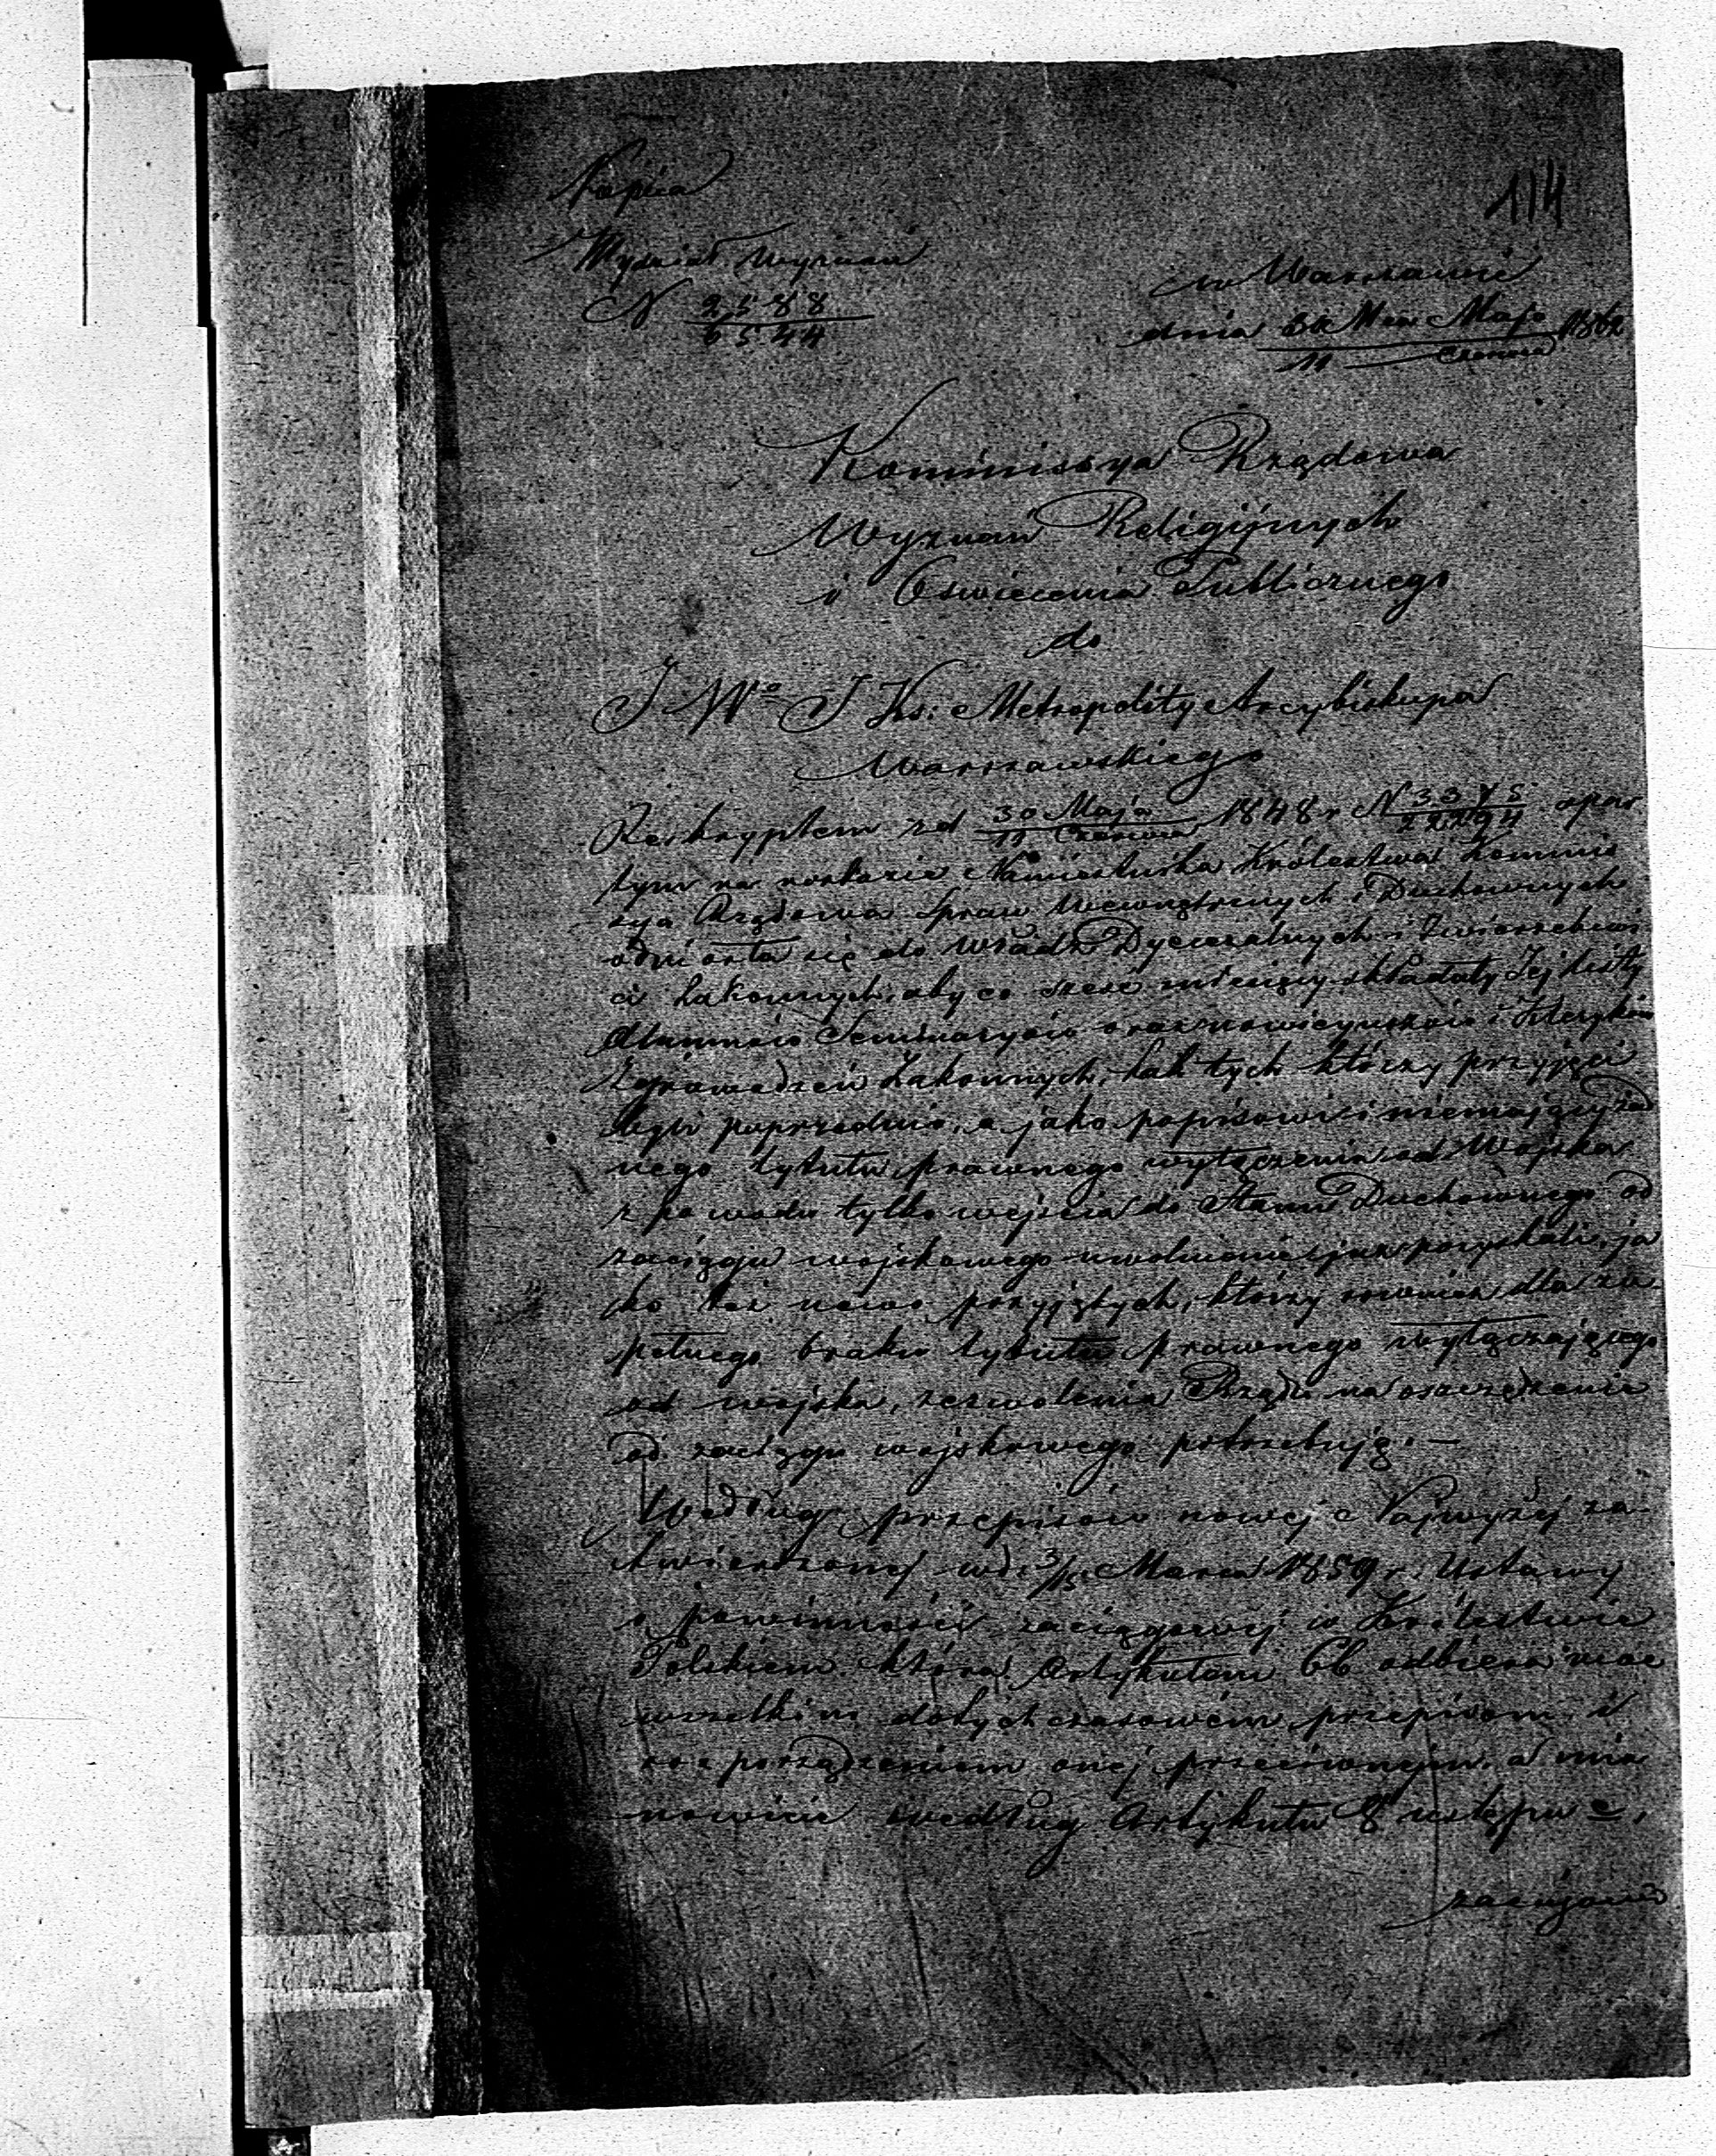 Kopia
114
Wydział Wyznań
N 2588
6544
w Warszawie
dnia 30 Maja 1862
11 Czerwca
Kommissya Rządowa
Wyznań Religijnych
i Oświecenia Publicznego
do
J W° J Ks: Metropolity Arcybiskupa
Warszawskiego
Reskryptem z d 30 Maja 1848 r N 3375 opar
11 Czerwca 22294
tym na rozkazie Namiestnika Królestwa Kommis
sya Rządowa Spraw Wewnętrznych i Duchownych
odniosła się do Władz Dyecezalnych i Zwierzchnoś
ci Zakonnych, aby co sześć miesięcy składały Jej listy
Alumnów Seminaryów oraz nowicyuszów i Kleryków
Zgromadzeń Zakonnych, tak tych którzy przyjęci
byli poprzednio, a jako popisowi i niemający żad
nego tytułu prawnego wyłączenia od Wojska
z powodu tylko wejścia do Stanu Duchownego od
zaciągu wojskowego uwolnienie już pozyskali, ja
ko też nowo przyjętych, którzy również dla zu
pełnego braku tytułu prawnego wyłączającego
od wojska, zezwolenia Rządu na oszczędzenie
od zaciągu wojskowego potrzebują. —
Według przepisów nowej Najwyżej za
twierdzonej w d: 3/15 Marca 1859 r. Ustawy
o powinności zaciągowej w Królestwie
Polskiem, która Artykułem 66 odbiera moc
wszelkim dotychczasowém przepisom i
rozporządzeniom onej przeciwnym, a mia
nowicie według Artykułu 8 ustępu c,